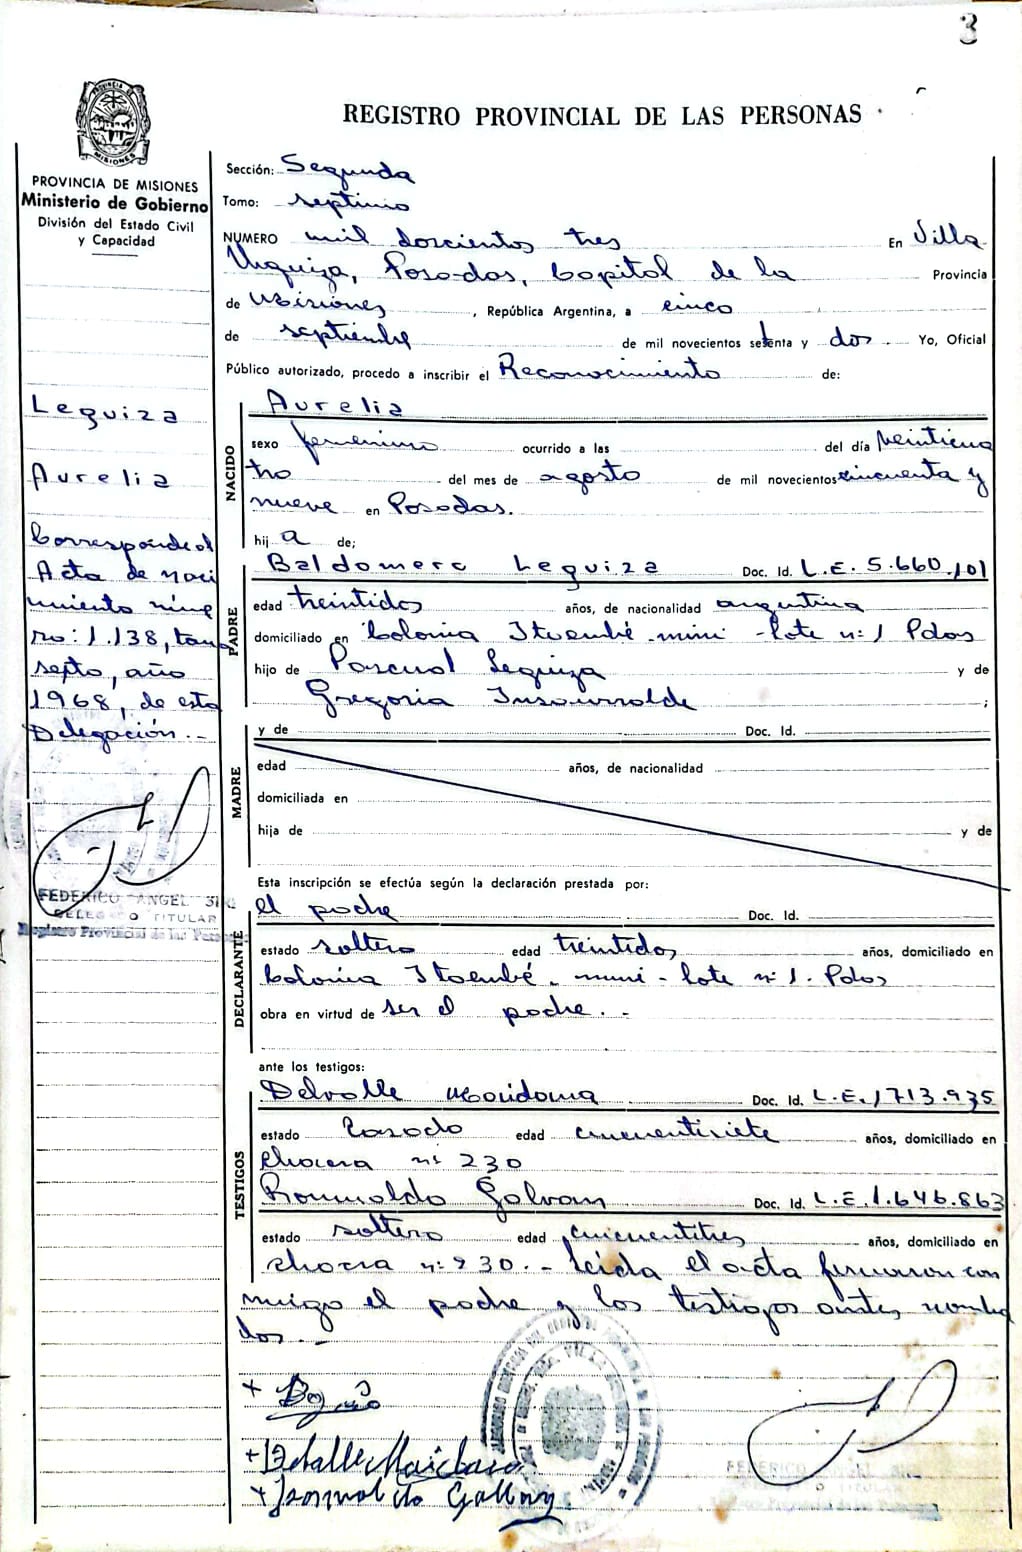 3
REGISTRO PROVINCIAL DE LAS PERSONAS
PROVINCIA DE MISIONES
Ministerio de Gobierno
División del Estado Civil
y Capacidad
Leguiza
Aurelia
Corresponde al
Acta de naci
miento núme
ro: 1.138, tomo
septo, año
1968, de esta
Delegación.-
FEDERICO ANGEL
DELEG O TITULAR
Registro Provincial de las Personas
Sección: Segunda
Tomo: septimo
NUMERO mil doscientos tres En Villa
Urquiza, Posadas, Capital de la Provincia
de Misiones, República Argentina, a cinco
de septiembre de mil novecientos setenta y dos. Yo, Oficial
Público autorizado, procedo a inscribir el Reconocimiento de:
NACIDO
Aurelia
sexo femenino ocurrido a las del día veinticua
tro del mes de agosto de mil novecientos cincuenta y
nueve en Posadas.
hij a de;
PADRE
Baldomero Leguiza Doc. Id. L.E. 5.660.101
edad treintidos años, de nacionalidad argentina
domiciliado en Colonia Itaembé-mini-lote nº 1 Pdas
hijo de Pascual Leguiza y de
Gregoria Insaurralde ;
MADRE
y de Doc. Id.
edad años, de nacionalidad
domiciliada en
hija de y de
Esta inscripción se efectúa según la declaración prestada por:
DECLARANTE
el padre Doc. Id.
estado soltero edad treintidos años, domiciliado en
Colonia Itaembé-mini-Lote nº 1. Pdas
obra en virtud de ser el padre.-
ante los testigos:
TESTIGOS
Delvalle Maidana Doc. Id. L.E. 1713.935
estado Casado edad cincuentisiete años, domiciliado en
chacra nº 230
Romualdo Galvan Doc. Id. L.E. 1.646.863
estado soltero edad cincuentitres años, domiciliado en
chacra nº 230.- Leida el acta firmaron con
migo el padre y los testigos antes nombra
dos.-
FEDERICO ANGEL